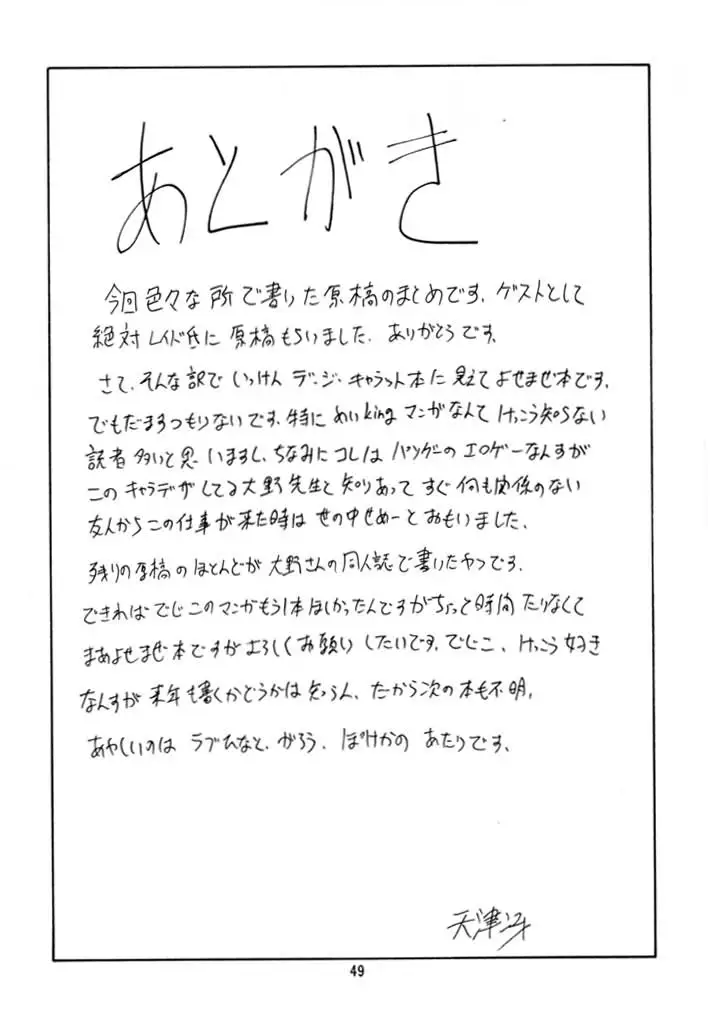 あとがき
今回色々な所で書いた原稿のまとめです.ゲストとして
絶対レイド氏に原稿もらいました.ありがとうです.
さて、そんな訳でいっけんデ・ジ・キャラット本に見えてよせまぜ本です.
でもだますつもりないです.特にめいkingマンがなんてけっこう知らない
読者多いと思いますし、ちなみにコレはパソゲーのエロゲーなんすが
このキャラデザしてる大野先生と知りあってすぐ何も関係のない
友人からこの仕事が来た時は世の中せめーとおもいました、
残りの原稿のほとんどが大野さんの同人誌で書いたやつです.
できればでじこのマンがもう1本ほしかったんですがちょっと時間たりなくて
まあよせまぜ本ですがよろしくお願いしたいです.でじこ、けっこう好き
なんすが来年も書くかどうかは知らん、だから次の本も不明.
あやしいのはラブひなと、がろう、ぽけかのあたりです、
天津冴
49